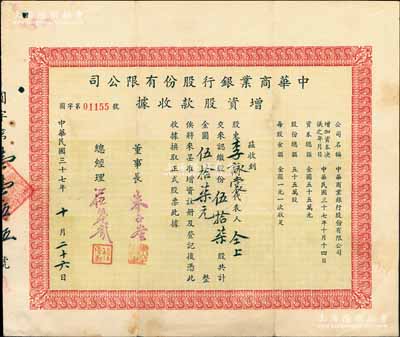 中華商業銀行股份有限公司
增資股款收據
國字第 01155 號
公司名稱 中華商業銀行股份有限公司
增加資本決議之年月日 中華民國三十七年十月十四日
資本總額 金圓五十五萬元
股份總額 五十五萬股
每股金額 金圓一元一次收足
茲收到
股東 李詠裳 代表人 仝上
交來認繳股份 伍拾柒 股共計
金圓 伍拾柒元 整
俟將來呈准增資註冊及登記後憑此
收據換取正式股票此據
董事長
總經理
中華民國三十七年 十 月 二十六 日